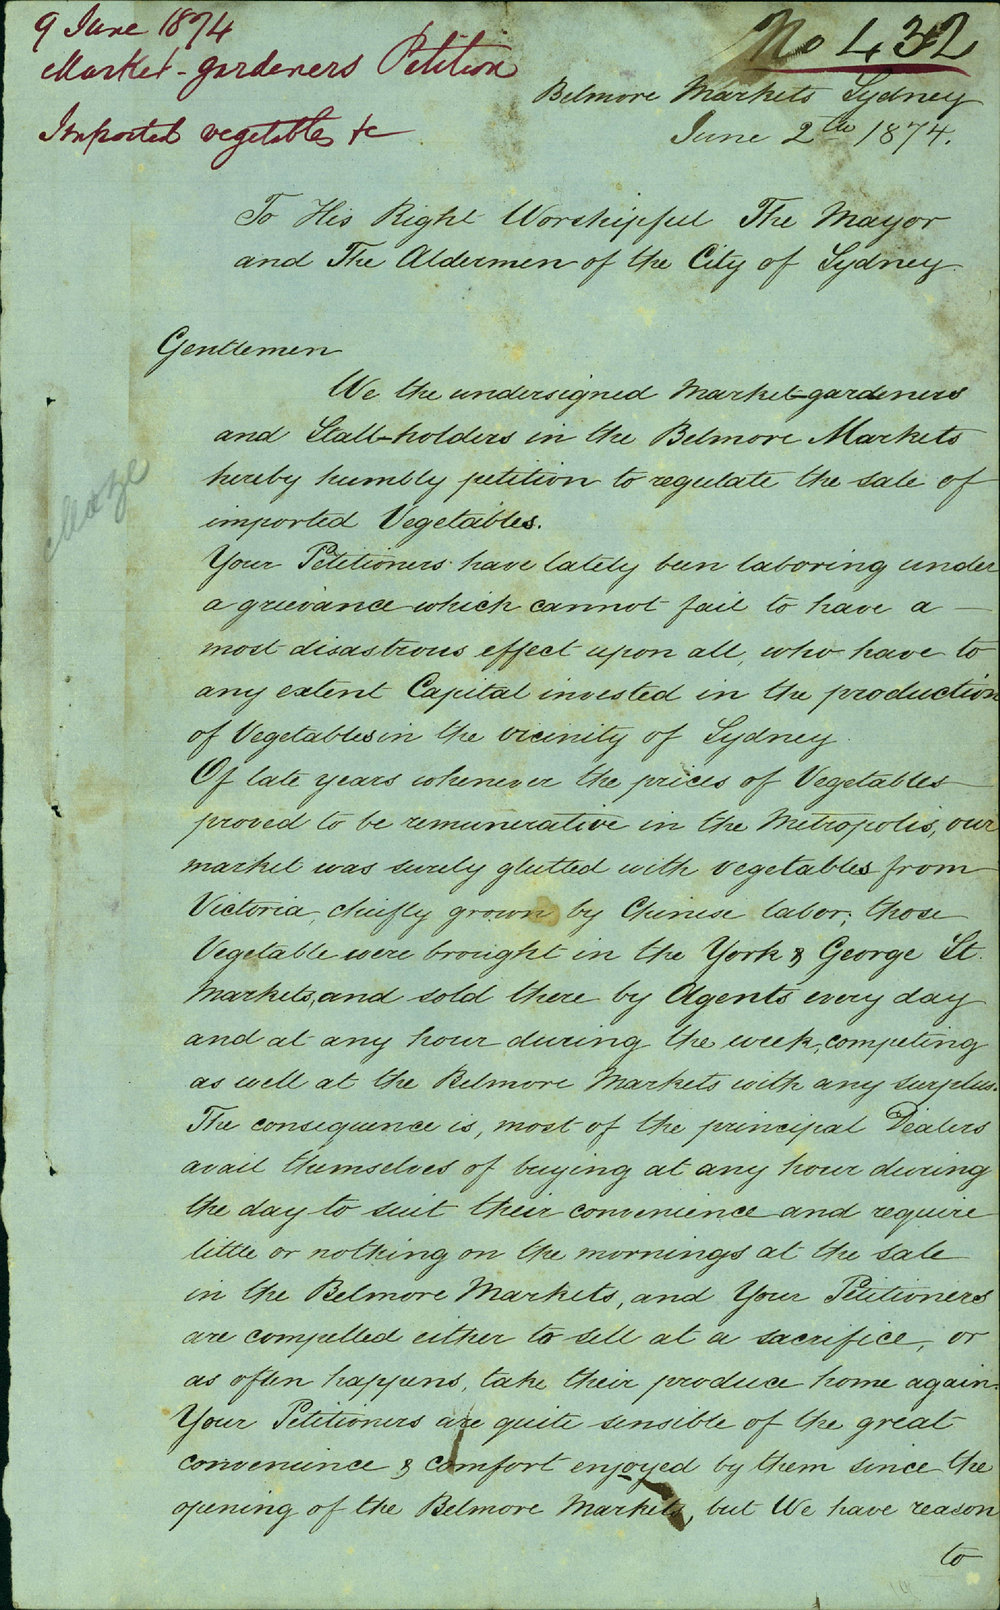 9 June 1874
Market-gardeners Petition
Imported vegetables &c
No 432
Belmore Markets Sydney
June 2th 1874.
To His Right Worshipful The Mayor
and The Aldermen of the City of Sydney
Gentlemen
We the undersigned Market-gardeners
and Stall-holders in the Belmore Markets
hereby humbly petition to regulate the sale of
imported Vegetables.
Your Petitioners have lately been laboring under
a grievance which cannot fail to have a
most disastrous effect upon all, who have to
any extent Capital invested in the production
of Vegetables in the vicinity of Sydney.
Of late years whenever the prices of Vegetables
proved to be remunerative in the Metropolis, our
market was surely glutted with vegetables from
Victoria, chiefly grown by Chinese labor; those
Vegetable were brought in the York & George St.
Markets, and sold there by Agents every day
and at any hour during the week, competing
as well at the Belmore Markets with any surplus.
The consequence is, most of the principal Dealers
avail themselves of buying at any hour during
the day to suit their convenience and require
little or nothing on the mornings at the sale
in the Belmore Markets, and Your Petitioners
are compelled either to sell at a sacrifice, or
as often happens, take their produce home again.
Your Petitioners are quite sensible of the great
convenience & comfort enjoyed by them since the
opening of the Belmore Markets, but We have reason
to